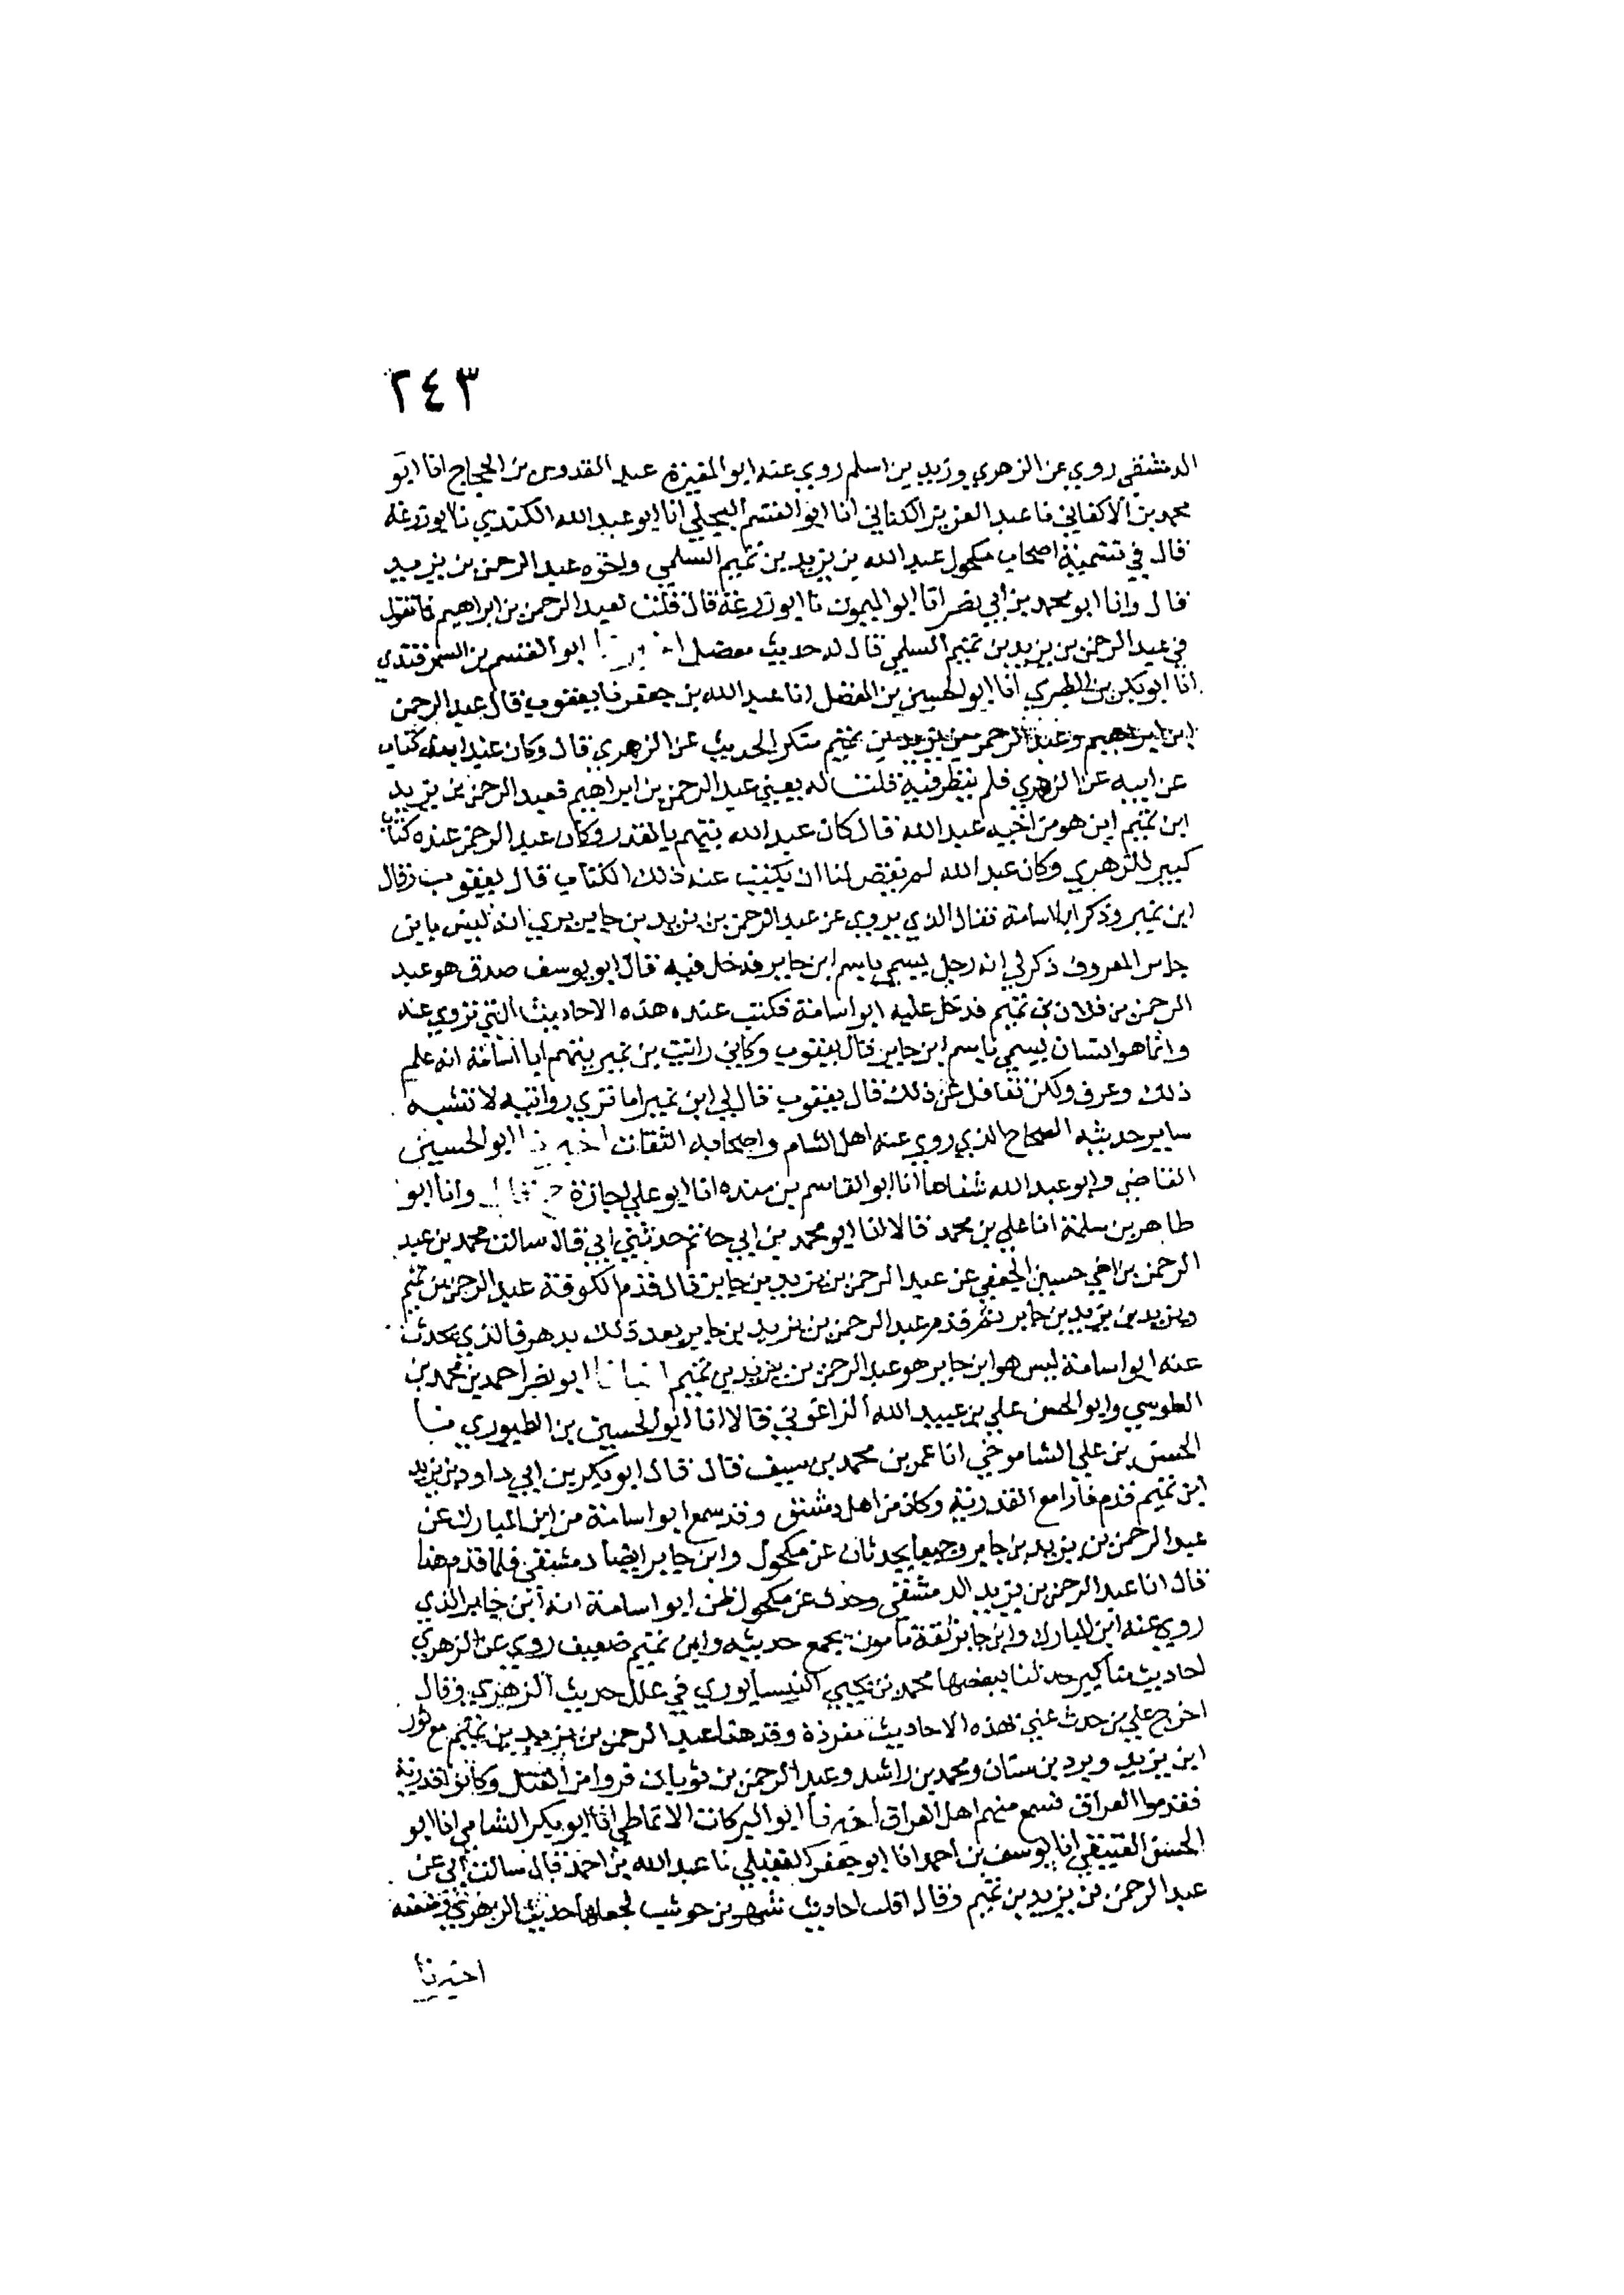 ٢٤٣
الدمشقي روي عن الزهري وزيد بن اسلم روي عنه ابو المغيرة عبد القدوس بن الحجاج انا ابو
محمد بن الاكفاني نا عبد العزيز الكتاني انا ابو القسم البجلي انا ابو عبد الله الكندي نا ابو زرعة
قال في تسمية اصحاب مكحول عبد الله بن يزيد بن تميم السلمي واخوه عبد الرحمن بن يزيد
قال وانا ابو محمد بن ابي نصر انا ابو الميمون نا ابو زرعة قال قلت لعبد الرحمن بن ابراهيم فا تقول
في عبد الرحمن بن يزيد بن تميم السلمي قال له حديث معضل اخبرنا ابو القسم بن السمرقندي
انا ابو بكر بن الطبري انا ابو الحسين بن الفضل انا عبد الله بن جعفر نا يعقوب قال عبد الرحمن
ابن ابراهيم وعبد الرحمن بن يزيد بن تميم منكر الحديث عن الزهري قال وكان عند ابنه كتاب
عن ابيه عن الزهري فلم ينظر فيه قلت له يعني عبد الرحمن بن ابراهيم فعبد الرحمن بن يزيد
ابن تميم اين هو من اخيه عبد الله قال كان عبد الله يتهم بالقدر وكان عبد الرحمن عنده كتاب
كبير للزهري وكان عبد الله لم يقض لنا ان يكتب عنه ذلك الكتاب قال يعقوب وقال
ابن نمير وذكر ابا اسامة فقال الذي يروي عن عبد الرحمن بن يزيد بن جابر يري انه ليس بابن
جابر المعروف ذكر لي انه رجل يسمي باسم ابن جابر فدخل فيه قال ابو يوسف صدق هو عبد
الرحمن بن فلان بن تميم فدخل عليه ابو اسامة فكتب عنه هذه الاحاديث التي تروي عنه
وانما هو انسان يسمي باسم ابن جابر قال يعقوب وكاني رايت بن نمير يتهم ابا اسامة انه علم
ذلك وعرف ولكن تغافل عن ذلك قال يعقوب قال لي ابن نمير اما تري روايته لا تشبه
ساير حديثه الصحاح الذي روي عنه اهل الشام واصحابه الثقات اخبرنا ابو الحسين
القاضي وابو عبد الله شفاها انا ابو القاسم بن منده انا ابو علي اجازة ح قال وانا ابو
طاهر بن سلمة انا علي بن محمد قالا انا ابو محمد بن ابي حاتم حدثني ابي قال سالت محمد بن عبد
الرحمن بن اخي حسين الجعفي عن عبد الرحمن بن يزيد بن جابر قال قدم الكوفة عبد الرحمن بن تميم
ويزيد بن يزيد بن جابر ثم قدم عبد الرحمن بن يزيد بن جابر بعد ذلك بدهر فالذي يحدث
عنه ابو اسامة ليس هو ابن جابر هو عبد الرحمن بن يزيد بن تميم انبانا ابو نصر احمد بن محمد بن
الطوسي وابو الحسن علي بن عبيد الله الزاغوني قالا انا ابو الحسين بن الطيوري نا
الحسن بن علي الشاموخي انا عمر بن محمد بن سيف قال قال ابو بكر بن ابي داود بن يزيد
ابن تميم قدم فارا مع القدرية وكان من اهل دمشق وقد سمع ابو اسامة من ابن المبارك عن
عبد الرحمن بن يزيد بن جابر وجميعا يحدثان عن مكحول وابن جابر ايضا دمشقي فلما قدم هذا
قال انا عبد الرحمن بن يزيد الدمشقي وحدث عن مكحول ظن ابو اسامة انه ابن جابر الذي
روي عنه ابن المبارك وابن جابر ثقة مامون يجمع حديثه وابن تميم ضعيف روي عن الزهري
احاديث مناكير حدثنا ببعضها محمد بن يحيي النيسابوري في علل حديث الزهري وقال
اخرج علي من حدث عني هذه الاحاديث مفردة وقدم هذا عبد الرحمن بن يزيد بن تميم مع ثور
ابن يزيد وبرد بن سنان ومحمد بن راشد وعبد الرحمن بن ثوبان فروا من القتل وكانوا قدرية
فقدموا العراق فسمع منهم اهل العراق اخبرنا ابو البركات الانماطي انا ابو بكر الشامي انا ابو
الحسن العتيقي انا يوسف بن احمد انا ابو جعفر العقيلي نا عبد الله بن احمد قال سالت ابي عن
عبد الرحمن بن يزيد بن تميم وقال اقلب احاديث شهر بن حوشب فجعلها حديث الزهري وضعفه
اخبرنا